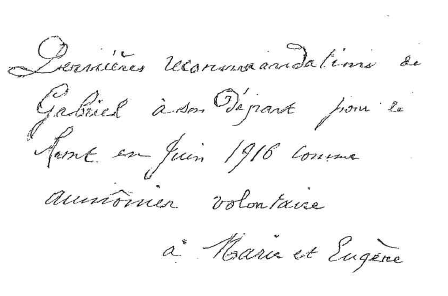 Dernières recommandations de
Gabriel à son Départ pour le
front en Juin 1916 comme
aumônier volontaire
à Marie et Eugène